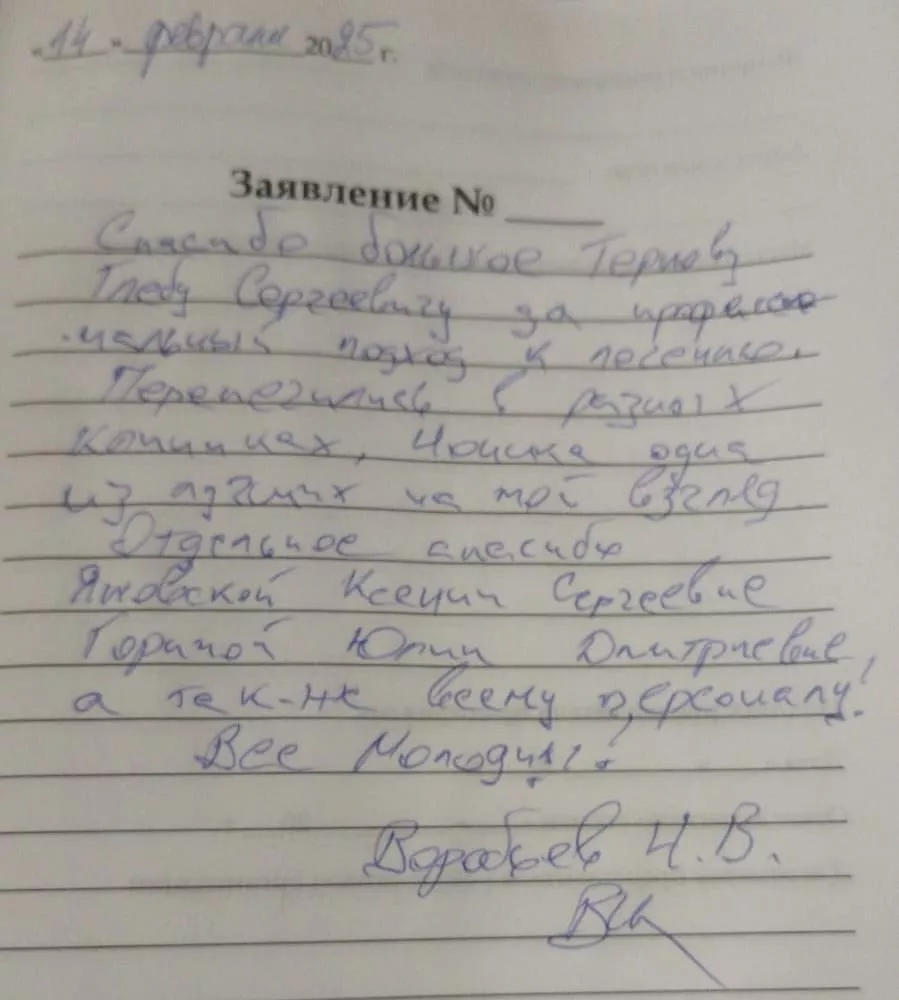 „14“ февраля 2025 г.
Заявление № ____
Спасибо большое Тернову
Глебу Сергеевичу за професио-
нальный подход к лечению.
Перелечились в разных
клиниках, одна
из лучших на мой взгляд
Отдельное спасибо
Яновской Ксении Сергеевне
Гориной Юлии Дмитриевне,
а так-же всему персоналу!
Все Молодцы!
Воробьев И.В.